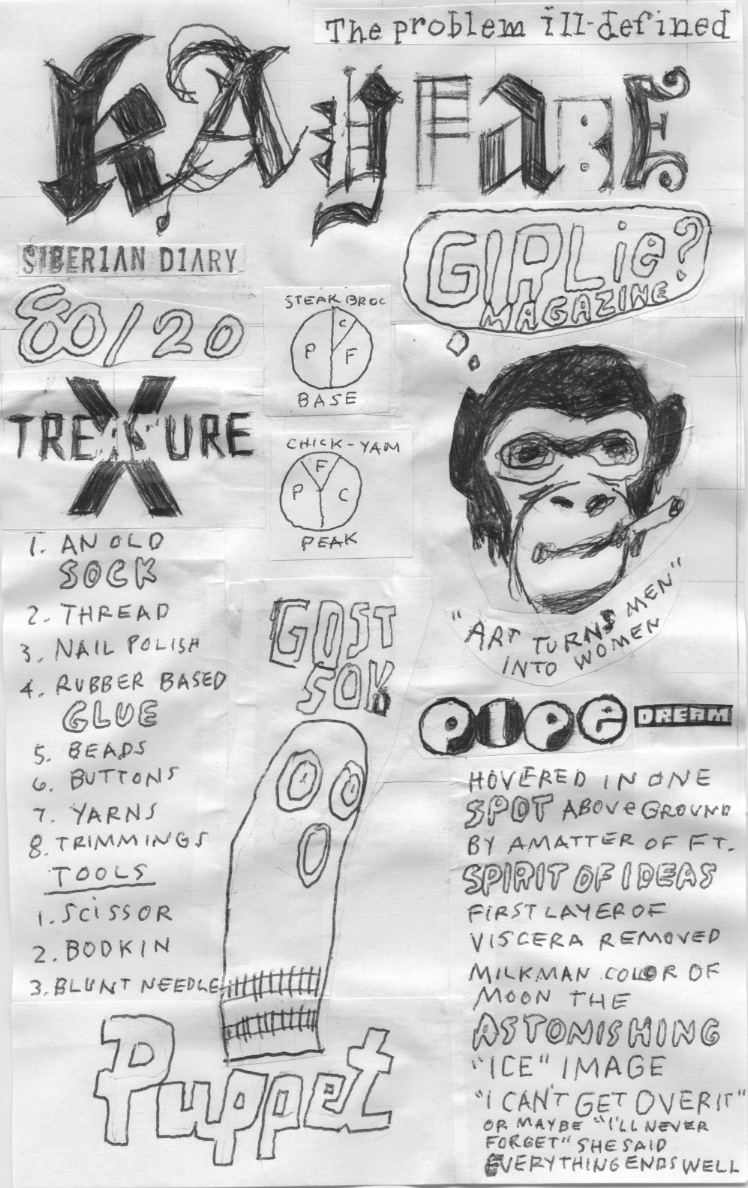 The problem ill-defined
KAYFABE
SIBERIAN DIARY
80/20
STEAK BROC
P C F
BASE
GIRLie?
MAGAZINE
TREXURE
CHICK-YAM
P F C
PEAK
1. AN OLD
SOCK
2. THREAD
3. NAIL POLISH
4. RUBBER BASED
GLUE
5. BEADS
6. BUTTONS
7. YARNS
8. TRIMMINGS
TOOLS
1. SCISSOR
2. BODKIN
3. BLUNT NEEDLE
GOST
SOK
Puppet
"ART TURNS MEN"
INTO WOMEN
PIPE DREAM
HOVERED IN ONE
SPOT ABOVE GROUND
BY AMATTER OF FT.
SPIRIT OF IDEAS
FIRST LAYER OF
VISCERA REMOVED
MILKMAN COLOR OF
MOON THE
ASTONISHING
"ICE" IMAGE
"I CAN'T GET OVER IT"
OR MAYBE "I'LL NEVER
FORGET" SHE SAID
EVERYTHING ENDS WELL